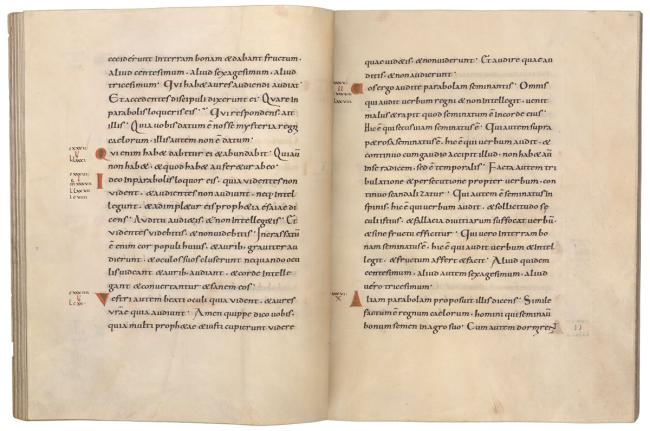 cciderunt interram bonam & dabant fructum ·
aliud centesimum · aliud sexagesimum · aliud
tricesimum · Qui hab& aures audiendi audiat
Et accedentes discipuli dixerunt ei · Quare in
parabolis loqueris eis · Qui respondens ait
illis · Quia vobis datum ē nosse mysteria regni
caelorum · illis autem non ē datum ·
Qui enim hab& dabitur ei & abundabit · Qui aūt
non hab& · & quod hab& aufer&ur ab eo
Ideo in parabolis loquor eis · quia videntes non
vident · & audientes non audiunt · neq· intel
legunt · & adimple&ur eis proph&ia esaiae di
cens · Auditu audi&is & non intelleg&is · Et
videntes videbitis · & non videbitis · Incrassatū
ē enim cor populi huius · & aurib· graviter au
dierunt · & oculos suos cluserunt ne quando ocu
lis videant & aurib· audiant · & corde intelle
gant & convertantur & sanem eos ·
Vestri autem beati oculi quia vident · & aures
vrae quia audiunt · Amen quippe dico vobis ·
quia multi proph&ae & iusti cupierunt videre
quae vid&is · & non viderunt · Et audire quae au
ditis · & non audierunt ·
Vos ergo audite parabolam seminantis · Omnis
qui audit verbum regni & non intellegit · venit
malus & rapit quod seminatum ē in corde eius
Hic ē qui secus uiam seminatus ē · Qui autem supra
p&rosa seminatus ē · hic ē qui verbum audit · &
continuo cum gaudio accipit illud · non hab& aūt
in se radicem · sed ē temporalis · Facta autem tri
bulatione & persecutione propter verbum · con
tinuo scandalizatur · Qui autem ē seminatus in
spinis · hic ē qui verbum audit · & sollicitudo se
culi istius · & fallacia divitiarum suffocat verbū
& sine fructu efficitur · Qui vero in terram bo
nam seminatus ē · hic ē qui audit verbum & intel
legit · & fructum affert & facit · Aliud quidem
centesimum · aliud autem sexagesimum · aliud
vero tricesimum ·
Aliam parabolam proposuit illis dicens · Simile
factum ē regnum caelorum · homini qui seminavit
bonum semen in agro suo · Cum autem dormirent